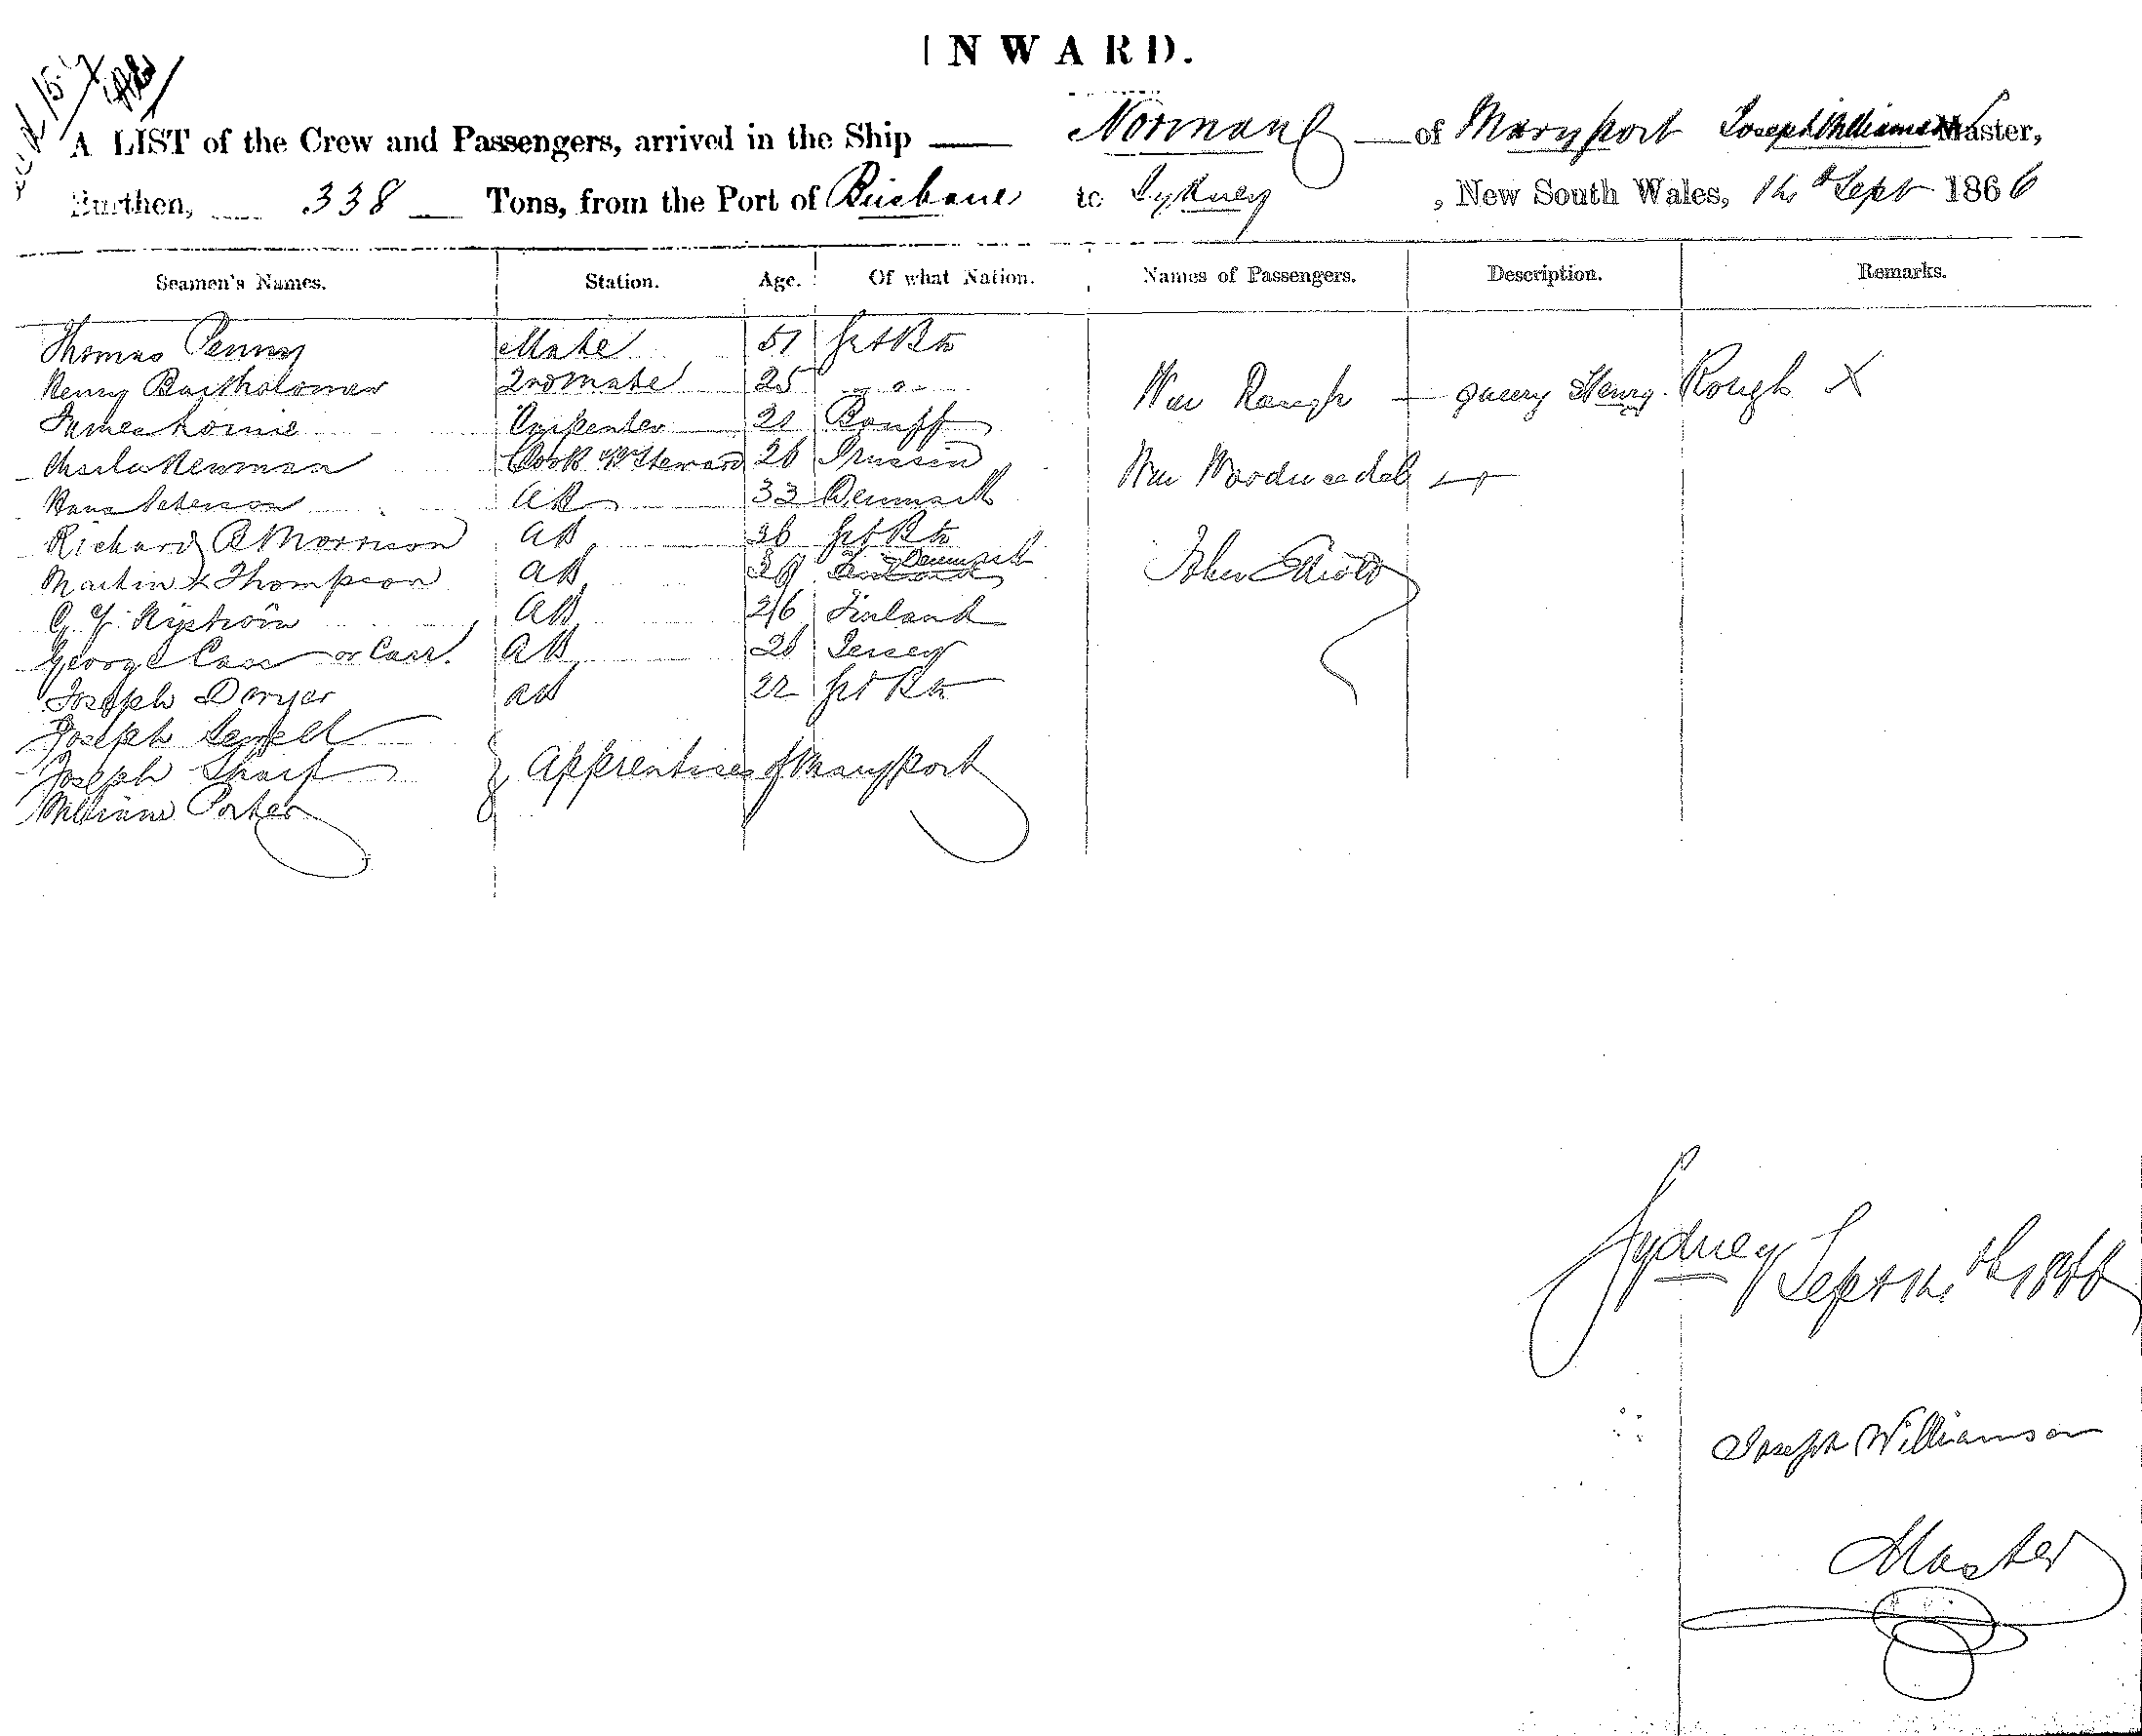 INWARD.
A LIST of the Crew and Passengers, arrived in the Ship Norman of Maryport Joseph Williamson Master,
Burthen, 338 Tons, from the Port of Brisbane to Sydney, New South Wales, 14th Sept 1866
Seamen's Names. Station. Age. Of what Nation. Names of Passengers. Description. Remarks.
Thomas Penny Mate 51 Grt Btn
Henry Bartholomew 2nd Mate 25 " o "
Wm Rough — query Henry Rough X
James Lornie Carpenter 21 Banff
Charles Newman Cook & Steward 26 Prussia
Wm
Hans Peterson AB 33 Denmark
Richard B Morrison AB 36 Grt Btn
Martin Thompson AB Denmark
John Elliott
AB 26 Finland
George Cass or Carr. AB 26 Jersey
Joseph Dwyer AB 22 Grt Btn
Joseph Sewell
Joseph Sharp Apprentices of Maryport
William Porter
Sydney Sept 14th 1866
Joseph Williamson
Master